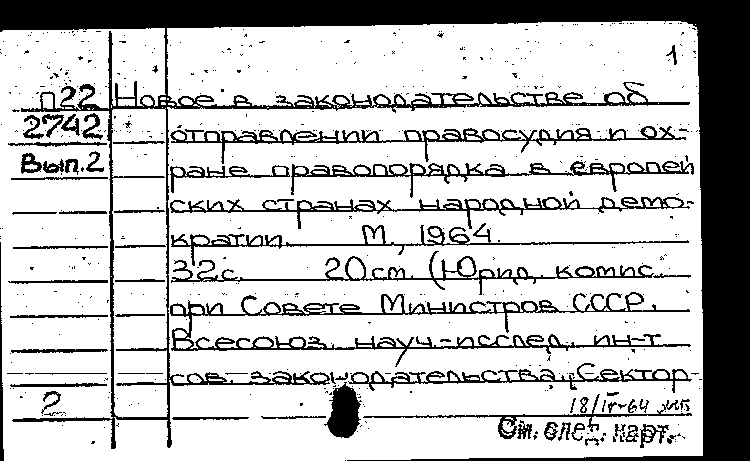 1
п22 Новое в законодательстве об
2742 отправлении правосудия и ох-
Вып.2 ране правопорядка в европей
ских странах народной демо-
кратии. М., 1964.
32с. 20см. (Юрид. комис.
при Совете Министров СССР.
Всесоюз. науч.-исслед. ин-т
сов. законодательства. Сектор
2 18/IV-64
См. след. карт.